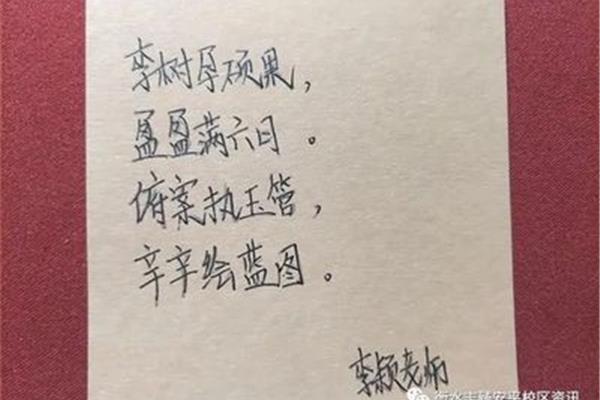 李树孕硕果，
盈盈满六日。
俯案执玉管，
辛辛绘蓝图。
李颖老师
衡水志臻安平校区资讯